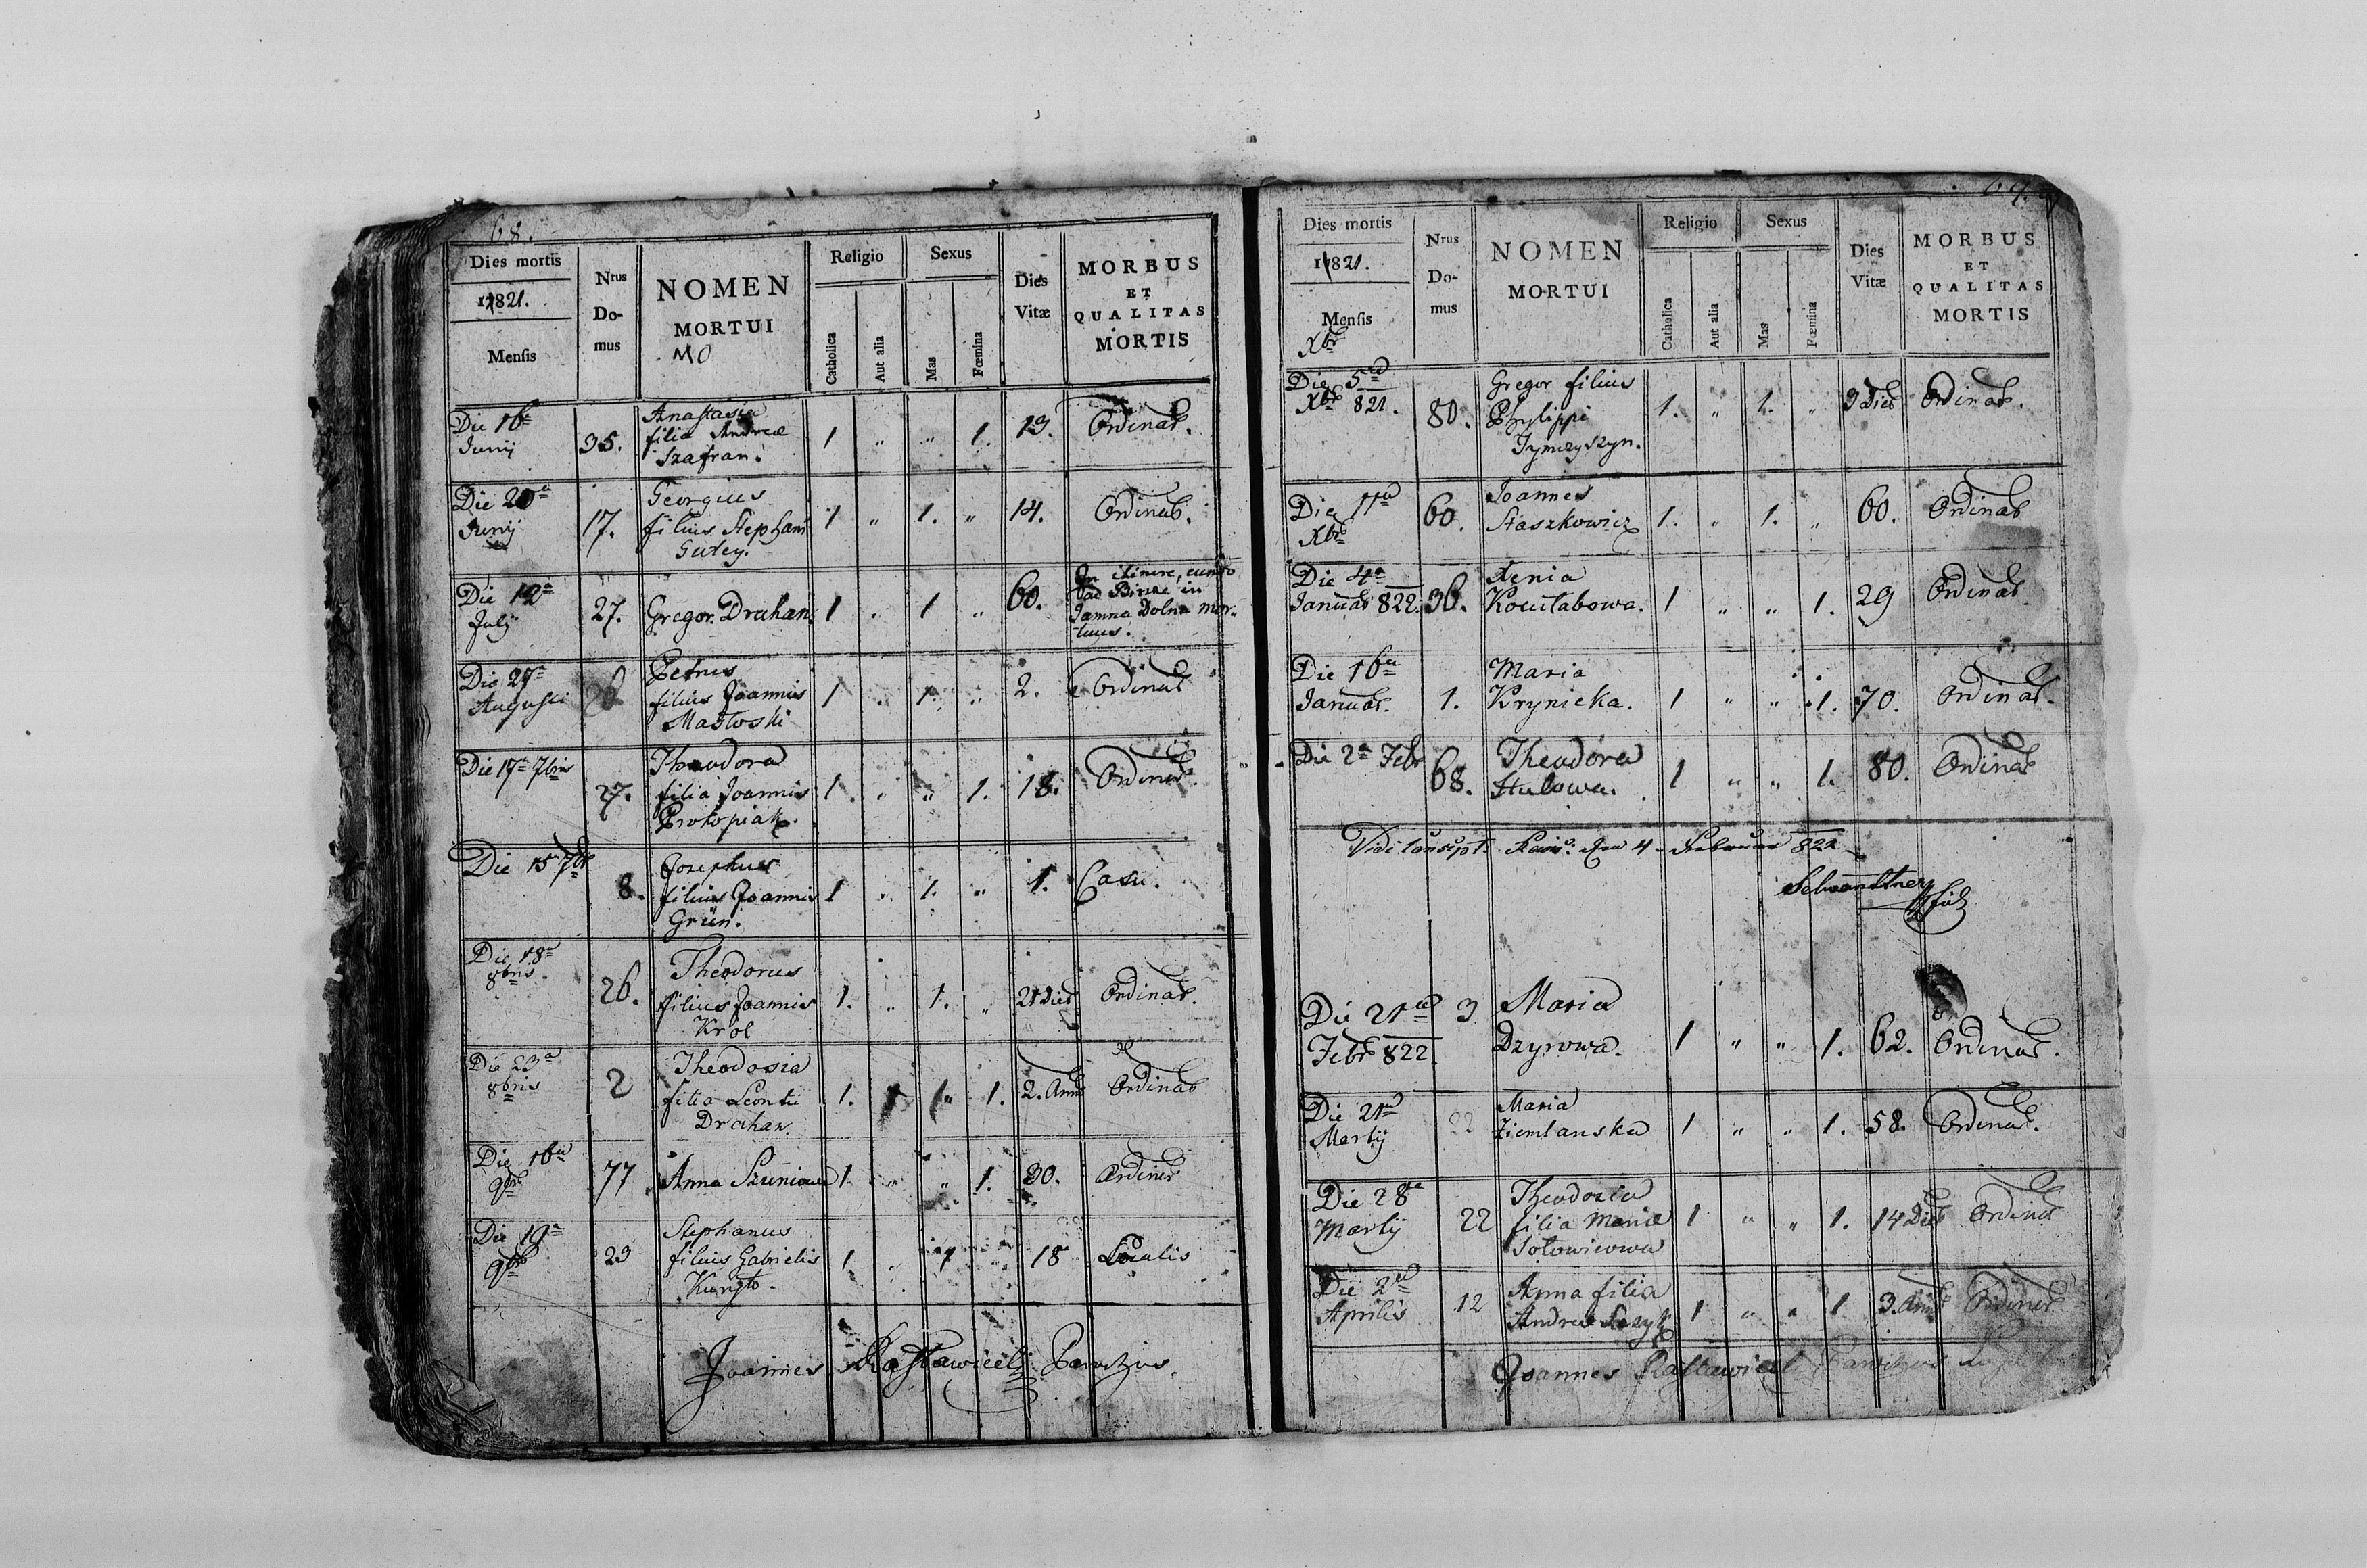 68.
Dies mortis
1821.
Mensis
Nrus
Do-
mus
NOMEN
MORTUI
Religio
Catholica
Aut alia
Sexus
Mas
Fœmina
Dies
Vitæ
MORBUS
ET
QUALITAS
MORTIS
Die 16a
Junij
35.
Anastasia
filia Andreæ
Szafran.
1 " " 1. 13. Ordinar.
Die 20a
Junij
17.
Georgius
filius Stephani
Gutey.
1 " 1. " 14. Ordinar.
Die 12a
July
27. Gregor. Drahan. 1 . 1 " 60.
In itinere, eundo
ad Bircze in
Jamna Dolna mor-
tuus.
Die 27a
Augusti
Petrus
filius Joannis
Masłoski
1 " 1. " 2. Ordinar
Die 17a 7bris
27.
Theodora
filia Joannis
Prokopiak.
1. " " 1. 18. Ordinar
Die 15 7br
8.
Josephus
filius Joannis
Grün.
1 " 1. " 1. Casu.
Die 18a
8bris.
26.
Theodorus
filius Joannis
Krol
1. " 1. " 21 Dier Ordinar.
Die 23a
8bris
2
Theodosia
filia Leontii
Drahan.
1. 1. 2. Ann Ordinar
Die 16a
9br
77 Anna 1. " " 1. 30. Ordinar
Die 19a
9br
23
Stephanus
filius Gabrielis
1 " 1 " 18 Localis
Joannes
Dies mortis
1821.
Mensis
Xbr
Nrus
Do-
mus
NOMEN
MORTUI
Religio
Catholica
Aut alia
Sexus
Mas
Fœmina
Dies
Vitæ
MORBUS
ET
QUALITAS
MORTIS
Die 5ta
Xbr 821.
80.
Gregor filius
Phylippi
Tymczyszyn.
1. " 1. " 3 Dier Ordinar.
Die 11a
Xbr
60.
Joannes
Staszkowicz
1. " 1. " 60. Ordinar
Die 4a
Januar 822.
36.
Xenia
Kocułabowa.
1 " " 1. 29 Ordinar
Die 16a
Januar.
1.
Maria
Krynicka.
1 " " 1. 70. Ordinar.
Die 2a Febr
68.
Theodora
1 " " 1. 80. Ordinar
Vidi 4 Februar 822
Die 21a
Febr 822.
3
Maria
Dzyrowa.
1 " " 1. 62. Ordinar.
Die 21a
Martij
22
Maria
Ziemlanska
1 " " 1. 58. Ordinar.
Die 28a
Martij
22
Theodosia
filia Mariæ
1 " " 1. 14 Dier Ordinar
Die 2a
Aprilis
12
Anna filia
Andreæ
1 " " 1 3. Ann Ordinar
Joannes